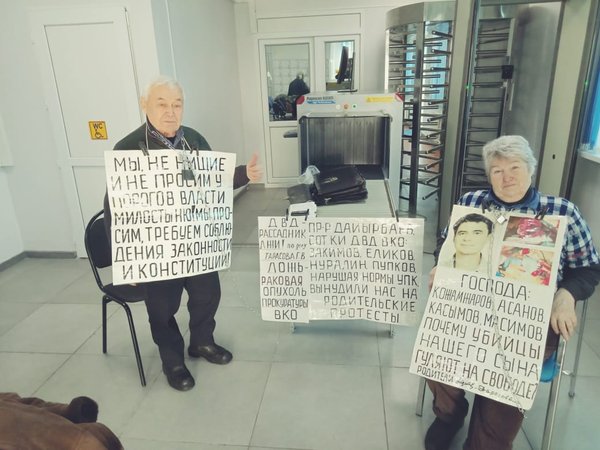 МЫ, НЕ НИЩИЕ
И НЕ ПРОСИМ У
ПОРОГОВ ВЛАСТИ
МИЛОСТЫНЮ! МЫ ПРО-
СИМ, ТРЕБУЕМ СОБЛЮ-
ДЕНИЯ ЗАКОННОСТИ
И КОНСТИТУЦИИ!
ДВД
РАССАДНИК
ЛЖИ!
ГАРАСОВА Г.В
ЛОЖЬ-
РАКОВАЯ
ОПУХОЛЬ
ПРОКУРАТУРЫ
ВКО
ПР-Р ДАЙЫРБАЕВ,
СОТКИ ДВД ВКО:
ЗАКИМОВ, ЕЛИКОВ,
НУРАЛИН, ПУПКОВ,
НАРУШАЯ НОРМЫ УПК,
ВЫНУДИЛИ НАС НА
РОДИТЕЛЬСКИЕ
ПРОТЕСТЫ
ГОСПОДА:
КОЖАИНАРОВ, АСАНОВ,
КАСЫМОВ, МАСИМОВ
ПОЧЕМУ УБИЙЦЫ
НАШЕГО СЫНА
ГУЛЯЮТ НА СВОБОДЕ?
РОДИТЕЛИ
WC